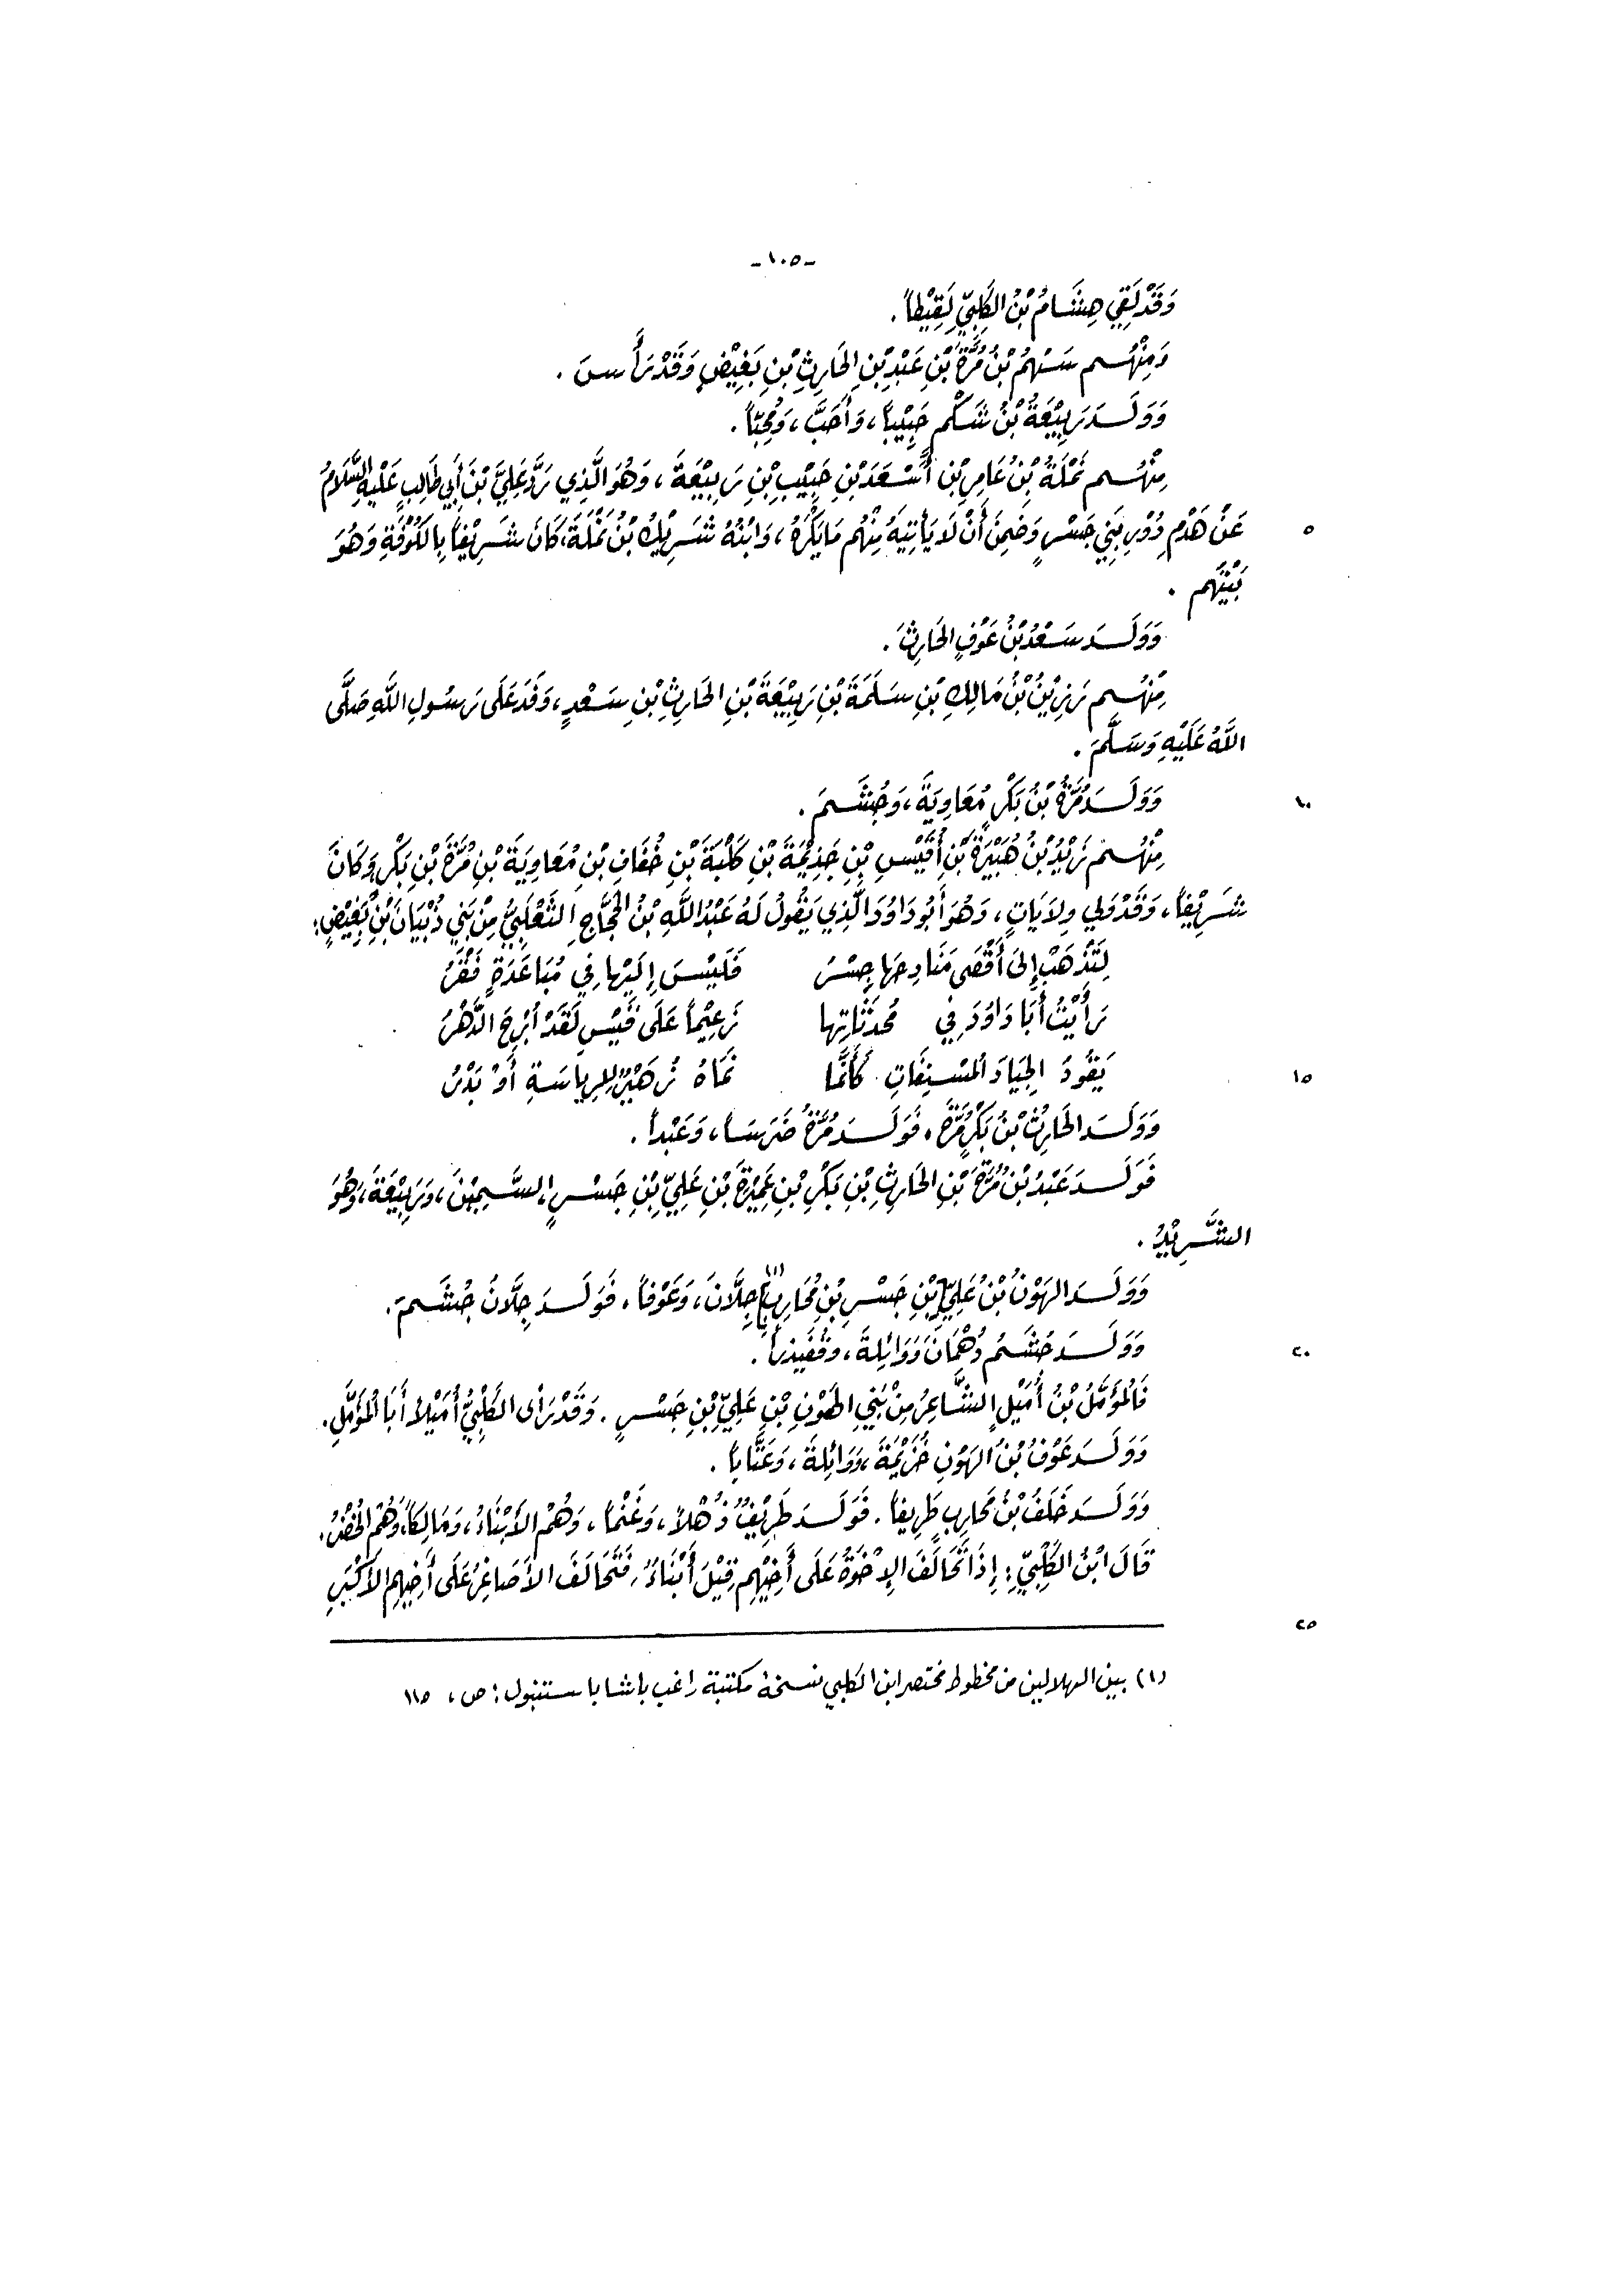 -١٠٥-
وَقَدْ لَقِيَ هِشَامُ بْنُ الكَلْبِيِّ لَقِيْطاً .
وَمِنْهُم سَهْمُ بْنُ مُرَّةَ بْنِ عَبْدِ بْنِ الحَارِثِ بْنِ بَغِيْضٍ وَقَدْ رَأَسَ .
وَوَلَدَ رَبِيْعَةُ بْنُ شَكْمٍ حَبِيْباً، وَأَحَبَّ، وَمُحِبّاً .
مِنْهُم نَمْلَةُ بْنُ عَامِرِ بْنِ أَسْعَدَ بْنِ حَبِيْبِ بْنِ رَبِيْعَةَ، وَهُوَ الَّذِي رَدَّ عَلِيَّ بْنَ أَبِي طَالِبٍ عَلَيْهِ السَّلَامُ
عَنْ هَدْمِ دُوْرِ بَنِي جَسْرٍ وَضَمِنَ أَنْ لَا يَأْتِيَهُ مِنْهُم مَا يَكْرَهُ، وَابْنُهُ شَرِيْكُ بْنُ نَمْلَةَ، كَانَ شَرِيْفاً بِالكُوْفَةِ وَهُوَ ٥
بَيْتُهُم .
وَوَلَدَ سَعْدُ بْنُ عَوْفٍ الحَارِثَ .
مِنْهُم رَزِيْنُ بْنُ مَالِكِ بْنِ سَلَمَةَ بْنِ رَبِيْعَةَ بْنِ الحَارِثِ بْنِ سَعْدٍ، وَفَدَ عَلَى رَسُولِ اللَّهِ صَلَّى
اللَّهُ عَلَيْهِ وَسَلَّمَ .
وَوَلَدَ مُرَّةُ بْنُ بَكْرٍ مُعَاوِيَةَ، وَجُشَمَ . ١٠
مِنْهُم زَيْدُ بْنُ هُبَيْرَةَ بْنِ أُقَيْسِ بْنِ جَذِيْمَةَ بْنِ كَلْبَةَ بْنِ خُفَافِ بْنِ مُعَاوِيَةَ بْنِ مُرَّةَ بْنِ بَكْرٍ، وَكَانَ
شَرِيْفاً، وَقَدْ وَلِيَ وِلَايَاتٍ، وَهُوَ أَبُو دَاوُدَ الَّذِي يَقُولُ لَهُ عَبْدُ اللَّهِ بْنُ الحَجَّاجِ الثَّعْلَبِيُّ مِنْ بَنِي ذُبْيَانَ بْنِ بَغِيْضٍ:
لِتَذْهَبْ إِلَى أَقْصَى مَنَادِحِهَا جِسْرُ فَلَيْسَ إِلَيْهَا فِي مُبَاعَدَةٍ فَقْرُ
رَأَيْتُ أَبَا دَاوُدَ فِي مُحْدَثَاتِهَا زَعِيْماً عَلَى قَيْسٍ لَقَدْ أَبْرَحَ الدَّهْرُ
يَقُودُ الجِيَادَ المُسْنِفَاتِ كَأَنَّمَا نَمَاهُ زُهَيْرٌ لِلرِيَاسَةِ أَوْ بَدْرُ ١٥
وَوَلَدَ الحَارِثُ بْنُ بَكْرٍ مُرَّةَ، فَوَلَدَ مُرَّةُ ضَرِسَاً، وَعَبْداً .
فَوَلَدَ عَبْدُ بْنُ مُرَّةَ بْنِ الحَارِثِ بْنِ بَكْرِ بْنِ عَمِيْرَةَ بْنِ عَلِيِّ بْنِ جَسْرٍ السَّمِيْنَ، وَرَبِيْعَةَ، وَهُوَ
الشَّرِيْدُ .
وَوَلَدَ الهَوْنُ بْنُ عَلِيِّ بْنِ جَسْرِ بْنِ مُحَارِبٍ (١) جِلَّانَ، وَعَوْفاً، فَوَلَدَ جِلَّانُ جُشَمَ.
وَوَلَدَ جُشَمُ دُهْمَانَ وَوَائِلَةَ، وَقُفَيْذِراً . ٢٠
فَالمُؤَمَّلُ بْنُ أُمَيْلٍ الشَّاعِرُ مِنْ بَنِي الهَوْنِ بْنِ عَلِيِّ بْنِ جَسْرٍ . وَقَدْ رَأَى الكَلْبِيُّ أُمَيْلاً أَبَا المُؤَمَّلِ.
وَوَلَدَ عَوْفُ بْنُ الهَوْنِ خُزَيْمَةَ، وَوَائِلَةَ، وَعَتَّاباً .
وَوَلَدَ خَلَفُ بْنُ مُحَارِبٍ طَرِيفاً . فَوَلَدَ طَرِيْفٌ ذُهْلاً، وَغَنْماً، وَهُمُ الأَبْنَاءُ، وَمَالِكاً، وَهُمُ الخُضْرُ،
قَالَ ابْنُ الكَلْبِيِّ: إِذَا تَحَالَفَ الإِخْوَةُ عَلَى أَخِيْهِم قِيْلَ أَبْنَاءُ، فَتَحَالَفَ الأَصَاغِرُ عَلَى أَخِيهِم الأَكْبَرِ
٢٥
(١) بين الهلالين من مخطوط مختصر ابن الكلبي نسخة مكتبة راغب باشا باستنبول: ص، ١١٥